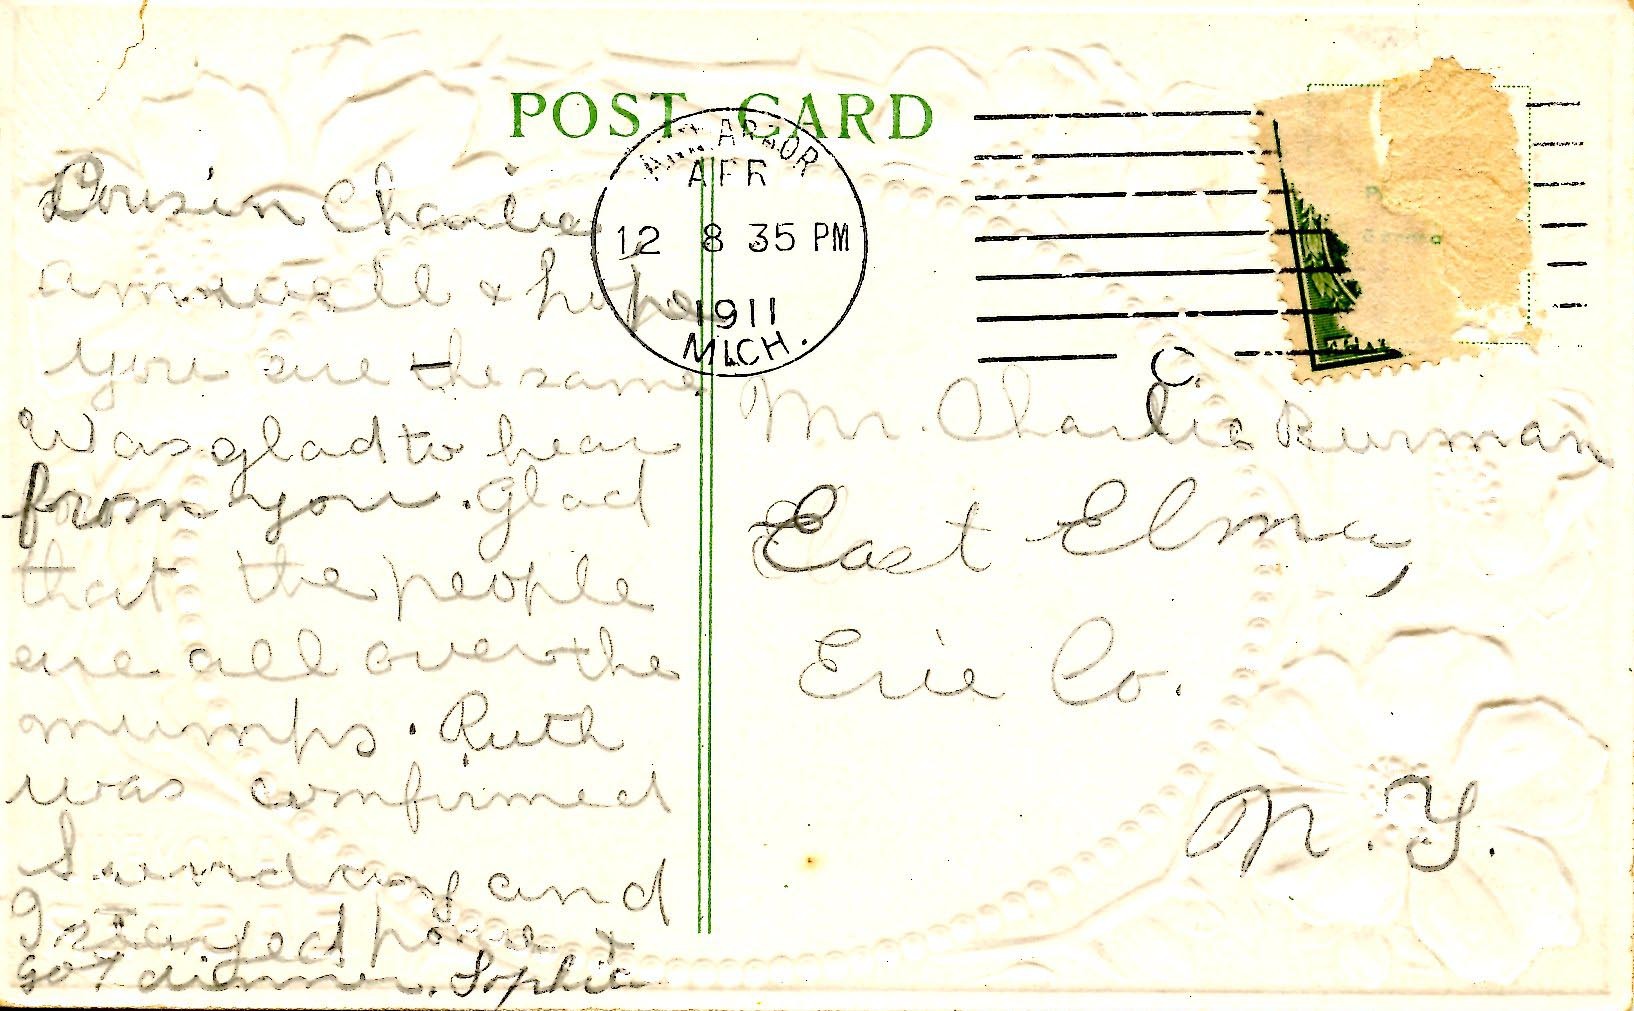 POST CARD
ANN ARBOR
APR
12 8 35 PM
1911
MICH.
C
Cousin Charlie
am well & hope
you are the same
Was glad to hear
from you. Glad
that the people
are all over the
mumps. Ruth
was confirmed
Sunday and
I stayed home &
got dinner. Sophia
Mr. Charlie Burman
East Elma,
Erie Co.
N.Y.